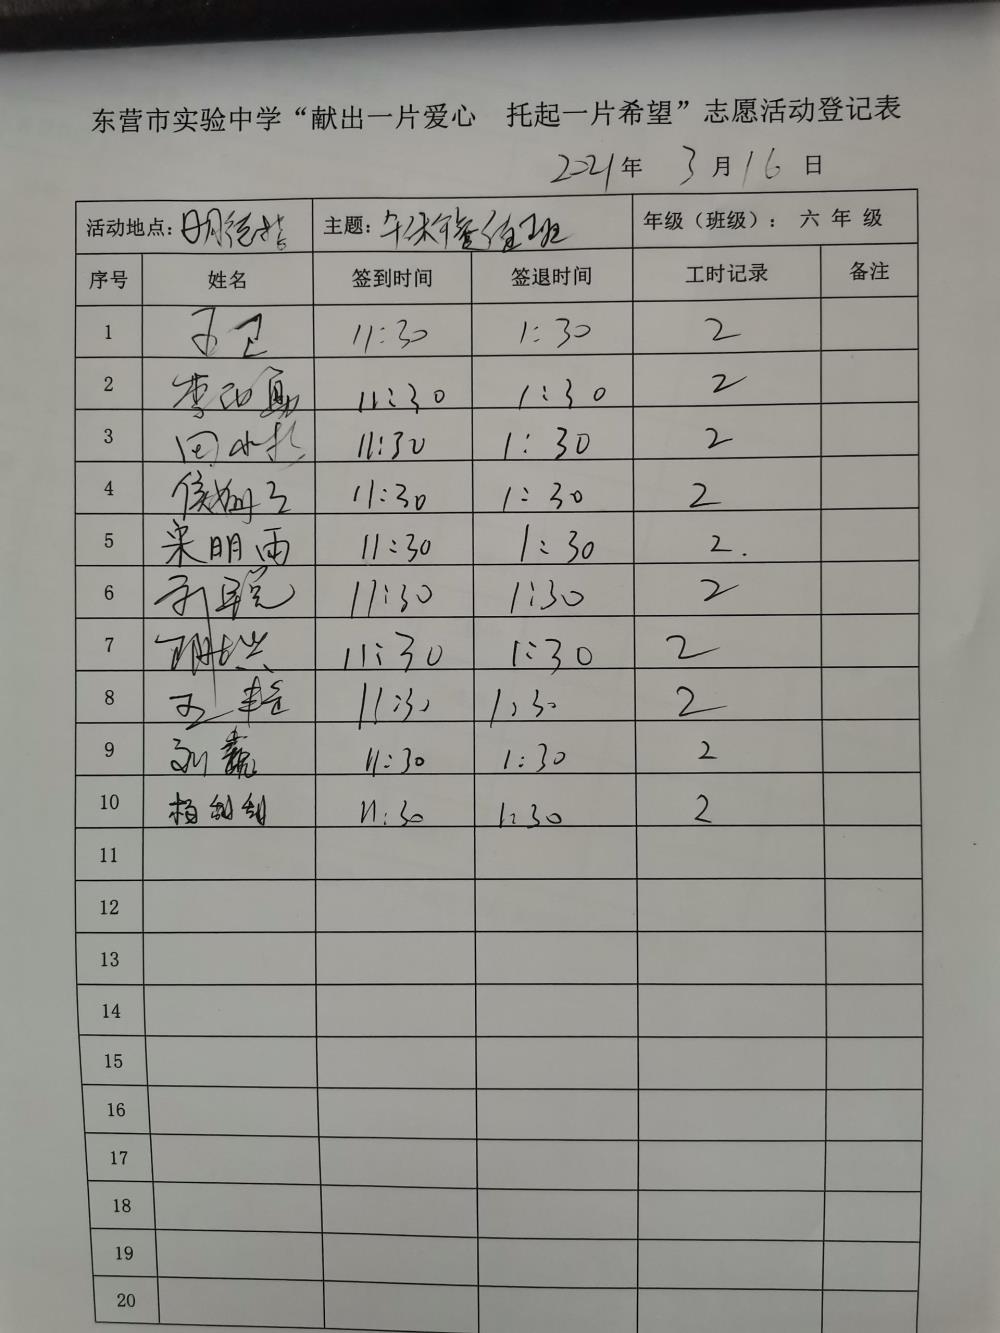 东营市实验中学“献出一片爱心 托起一片希望”志愿活动登记表
2021年 3月16日
活动地点：明德楼 主题：午休 值班 年级（班级）：六 年 级
序号 姓名 签到时间 签退时间 工时记录 备注
1 王卫 11:30 1:30 2
2 李 11:30 1:30 2
3 田 11:30 1:30 2
4 侯 11:30 1:30 2
5 宋明雨 11:30 1:30 2.
6 11:30 1:30 2
7 11:30 1:30 2
8 王 11:30 1:30 2
9 刘 11:30 1:30 2
10 杨 11:30 1:30 2
11
12
13
14
15
16
17
18
19
20